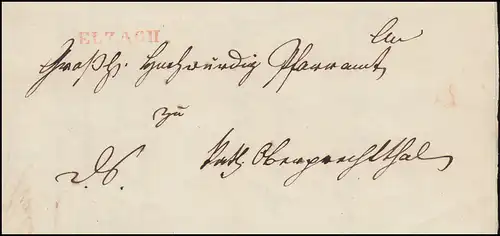 ELZACH
An
Großh. Hochwürdig Pfarramt
zu
d.S. Kath. Oberprechthal